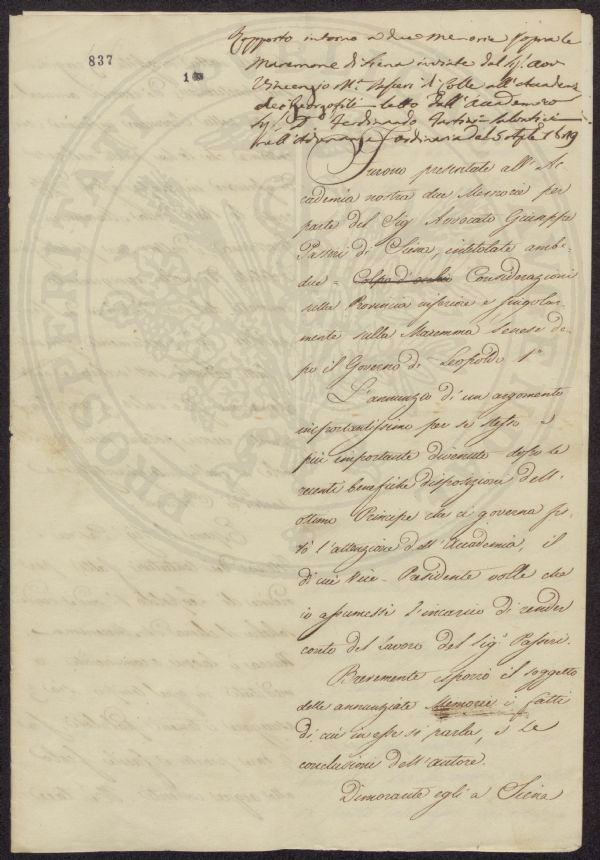 837
1
Rapporto intorno a due Memorie sopra le
Maremme di Siena inviate dal Sig. Avv.
Vincenzio M.a Passeri di Colle all'Accademia
dei Georgofili letto dall'Accademico
Sig. D. Ferdinando Tartini Salvatici
nell'Adunanza Ordinaria del 5 1819
Furono presentate all'Ac-
cademia nostra due Memorie per
parte del Sig. Avvocato Giuseppe
Passeri di Siena, intitolate ambi-
due = Colpo d'occhio Considerazioni
sulla Provincia inferiore e singolar-
mente sulla Maremma Senese do-
po il Governo di Leopoldo 1°
L'annunzio di un argomento
importantissimo per se stesso e
più importante divenuto dopo le
recenti benefiche disposizioni dell'
ottimo Principe che ci governa fis-
sò l'attenzione dell'Accademia, il
di cui Vice-Presidente volle che
io assumessi l'incarico di render
conto del lavoro del Sig.r Passeri.
Brevemente esporrò il soggetto
delle annunziate Memorie i fatti
di cui in esse si parla, e le
conclusioni dell'autore.
Dimorante egli a Siena
PROSPERITA